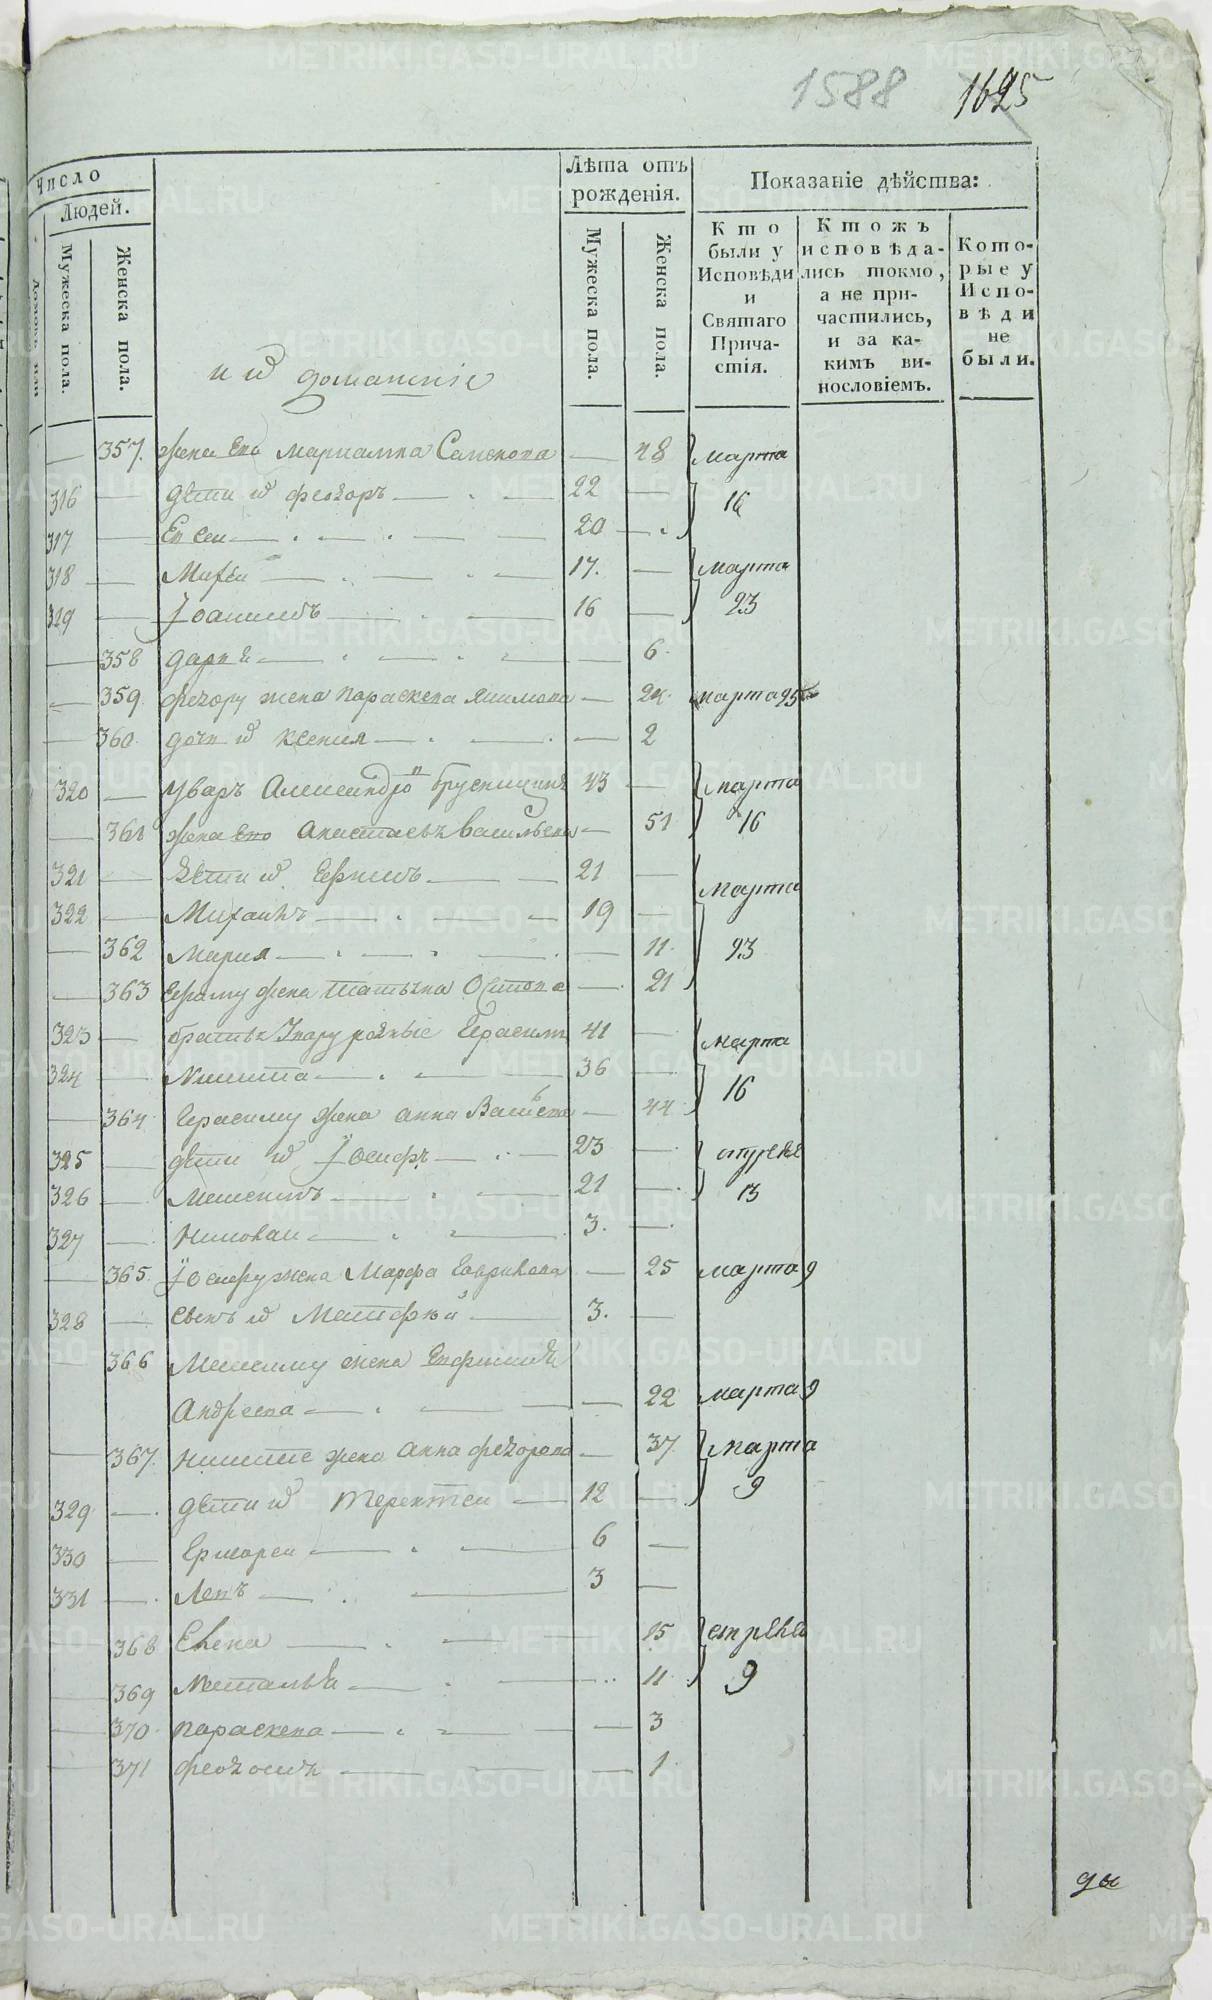 1588 1625
Число
Людей.
Мужеска пола.
Женска пола.
Лѣта отъ рожденія.
Мужеска пола.
Женска пола.
Показаніе дѣйства:
Кто были у Исповѣди и Святаго Причастія.
Ктожъ исповѣдались токмо, а не причастились, и за какимъ винословіемъ.
Которые у Исповѣди не были.
и их домашніе
— 357. жена его Мариамна Самсонова — 48 марта
316 — дѣти их феодоръ — 22 — 16
317 — Евсеи — 20 —
318 — Михеи — 17. — марта
329 — Іоакимъ — 16 — 23
— 358 дарья — 6
— 359 феодору жена параскева якимова — 24 марта 25
— 360 дочь их ксения — 2
320 — Уваръ Александров брусницын 43 — марта
— 361 жена его анастасья васильева — 51 16
321 — дѣти их Ефимъ — 21 — марта
322 — Михаилъ — 19 —
— 362 Мария — 11. 23
— 363 Ефиму жена татьяна Осипова — 21
323 — братья Увару родные Герасим 41 — марта
324 — Никита — 36 —
— 364 Герасиму жена анна Васильева — 44 16
325 — дѣти их Іосифъ — 23 —
326 — Максимъ — 21 — 13
327 — Николаи — 3. —
— 365 Іосифу жена Марфа Гаврилова — 25 марта 9
328 — сынъ их Матфѣй — 3. —
— 366 Максиму жена
Андреева — 22 марта 9
— 367. Никите жена анна феодорова — 37 марта
329 — дѣти их терентеи — 12 — 9
330 — Григореи — 6 —
331 — Левъ — 3 —
— 368 Елена — 15 апреля
— 369 Наталья — 11 9
— 370 параскева — 3
— 371 — 1